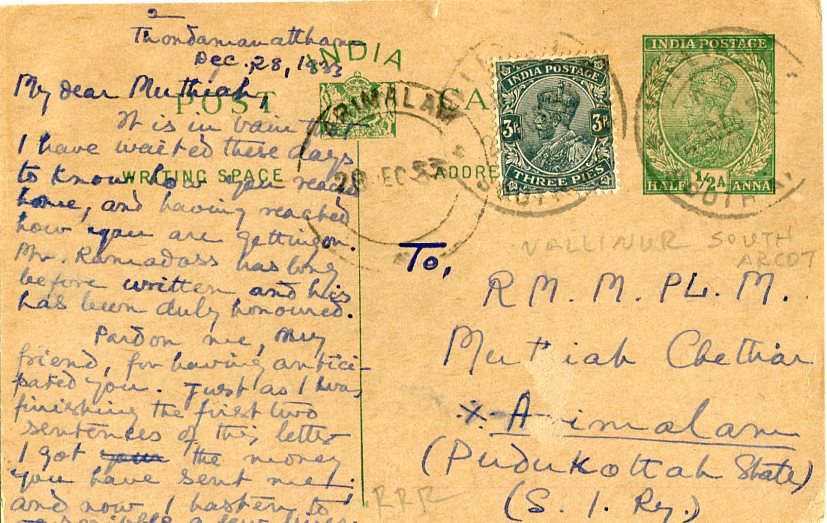 Thondamanattham
Dec. 28, 1933
INDIA
POST CA
WRITING SPACE
ADDRE
My dear Muthiah,
It is in vain that
I have waited these days
to know how you reach
home, and having reached
how you are getting on.
Mr. Ramadoss has long
before written and his
has been duly honoured.
Pardon me, my
friend, for having antici-
pated you. Just as I was
finishing the first two
sentences of this letter
I got the money
you have sent me!
and now I hasten to
a few lines
ARIMALAM
28 DEC 33
INDIA POSTAGE
3 Ps 3 Ps
THREE PIES
INDIA POSTAGE
½A
HALF ANNA
SOUTH
VALLINUR SOUTH
ARCOT
To,
R M. M. PL. M.
Muthiah Chettiar
Arimalam
(Pudukottah State)
(S. I. Ry.)
RRR